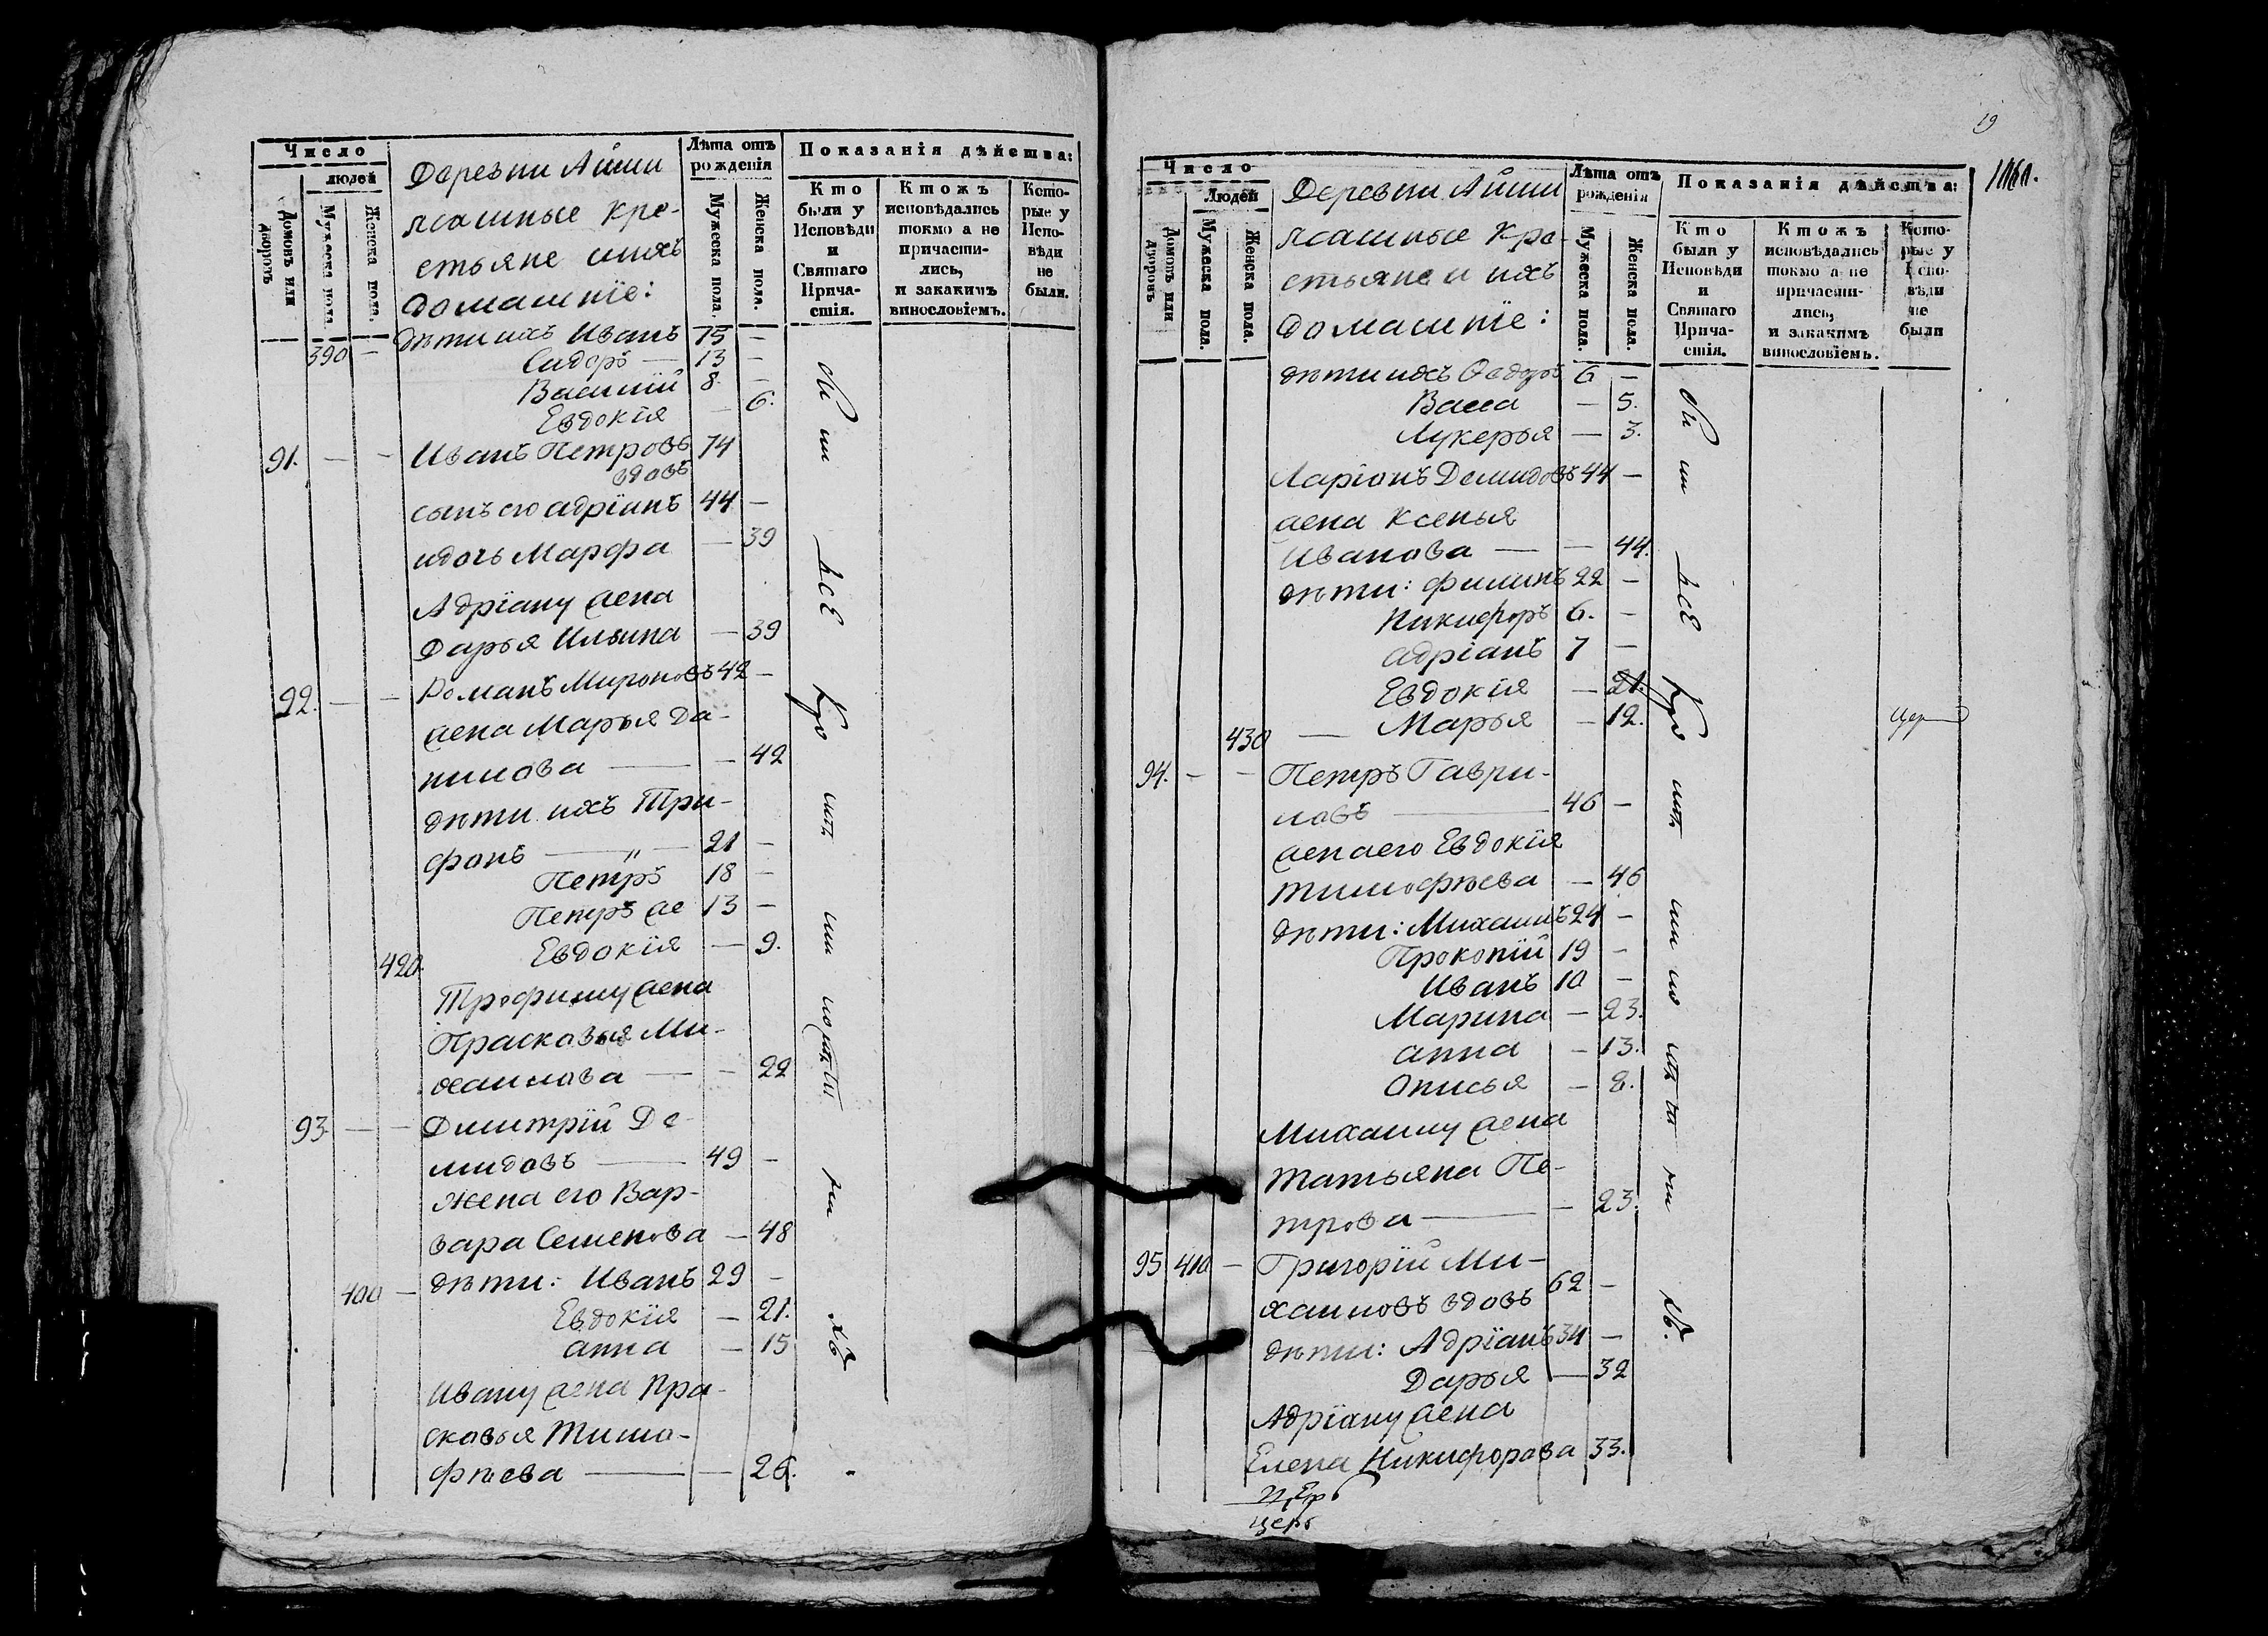 Число
людей
Домовъ или дворовъ
Мужеска пола.
Женска пола.
Деревни Айши
ясашные кре-
стьяне ихъ
домашнїе:
Лѣта отъ рожденія
Мужеска пола.
Женска пола.
Показанія дѣйства:
Кто были у Исповѣди и Святаго Прича-стія.
Ктожъ исповѣдались токмо а не причасти-лись, и закакимъ винословіемъ.
Кото-рые у Испо-вѣди не были.
дѣти ихъ Иванъ 15 —
390 — Сидоръ — 13 —
Василїй 8. —
Евдокїя — 6.
91. — — Иванъ Петровъ 74
вдовъ
сынъ его адрїанъ 44 —
идочь Марфа — 39
Адрїану жена
Дарья Ильина — 39
92. — — Романъ Мироновъ 42 —
жена Марья Да-
нилова — — 42
дѣти ихъ Три-
фонъ — „ — 21 —
Петръ 18 —
Петръ же 13 —
Евдокїя — 9.
420.
Трофиму жена
Прасковья Ми-
хаилова — — 22
93. — — Димитрїй Де-
мидовъ — 49 —
жена его Вар-
вара Семенова — 48
400 — дѣти: Иванъ 29 —
Евдокїя — 21.
анна — 15
Ивану жена Пра-
сковья Тимо-
фѣева — — 26.
19
Число
Людей
Домовъ или дворовъ
Мужеска пола.
Женска пола.
Деревни Айши
ясашные кре-
стьяне и ихъ
домашнїе:
Лѣта отъ рожденія
Мужеска пола.
Женска пола.
Показанія дѣйства:
Кто были у Исповѣди и Святаго Прича-стія.
Ктожъ исповѣдались токмо а не причасти-лись, и закакимъ винословіемъ.
Кото-рые у Испо-вѣди не были
дѣти ихъ Ѳедоръ 6 —
Васса — 5.
Лукерья — 3.
Ларїонъ Демидовъ 44 —
жена Ксенья
Иванова — — 44.
дѣти: филипъ 22 —
Никифоръ 6. —
адрїанъ 7 —
Евдокїя — 21.
430 — Марья — 12.
94. — — Петръ Гаври-
ловъ — 46 —
жена его Евдокїя
Тимофѣева — 46
дѣти: Михаилъ 24 —
Прокопїй 19 —
Иванъ 10 —
Марина — 23.
анна — 13.
Анисья — 8.
Михаилу жена
Татьяна Пе-
трова — — 23.
95 410 — Григорїй Ми-
хаиловъ вдовъ 62 —
дѣти: Адрїанъ 34 —
Дарья — 32
Адрїану жена
Елена Никифорова 33.